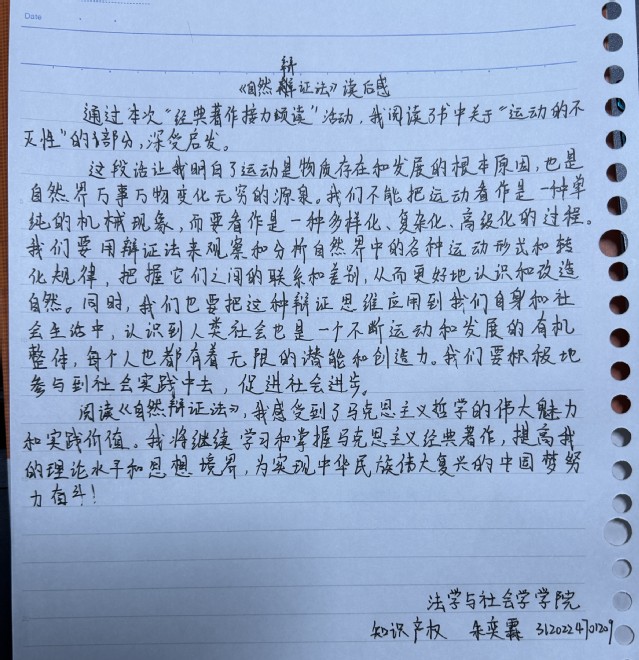 Date
辩
《自然辩证法》读后感
通过本次“经典著作接力颂读”活动，我阅读了书中关于“运动的不
灭性”的部分，深受启发。
这段话让我明白了运动是物质存在和发展的根本原因，也是
自然界万事万物变化无穷的源泉。我们不能把运动看作是一种单
纯的机械现象，而要看作是一种多样化、复杂化、高级化的过程。
我们要用辩证法来观察和分析自然界中的各种运动形式和转
化规律，把握它们之间的联系和差别，从而更好地认识和改造
自然。同时，我们也要把这种辩证思维应用到我们自身和社
会生活中，认识到人类社会也是一个不断运动和发展的有机
整体，每个人也都有着无限的潜能和创造力。我们要积极地
参与到社会实践中去，促进社会进步。
阅读《自然辩证法》，我感受到了马克思主义哲学的伟大魅力
和实践价值。我将继续学习和掌握马克思主义经典著作，提高我
的理论水平和思想境界，为实现中华民族伟大复兴的中国梦努
力奋斗！
法学与社会学学院
知识产权 朱奕霖 3120224701209